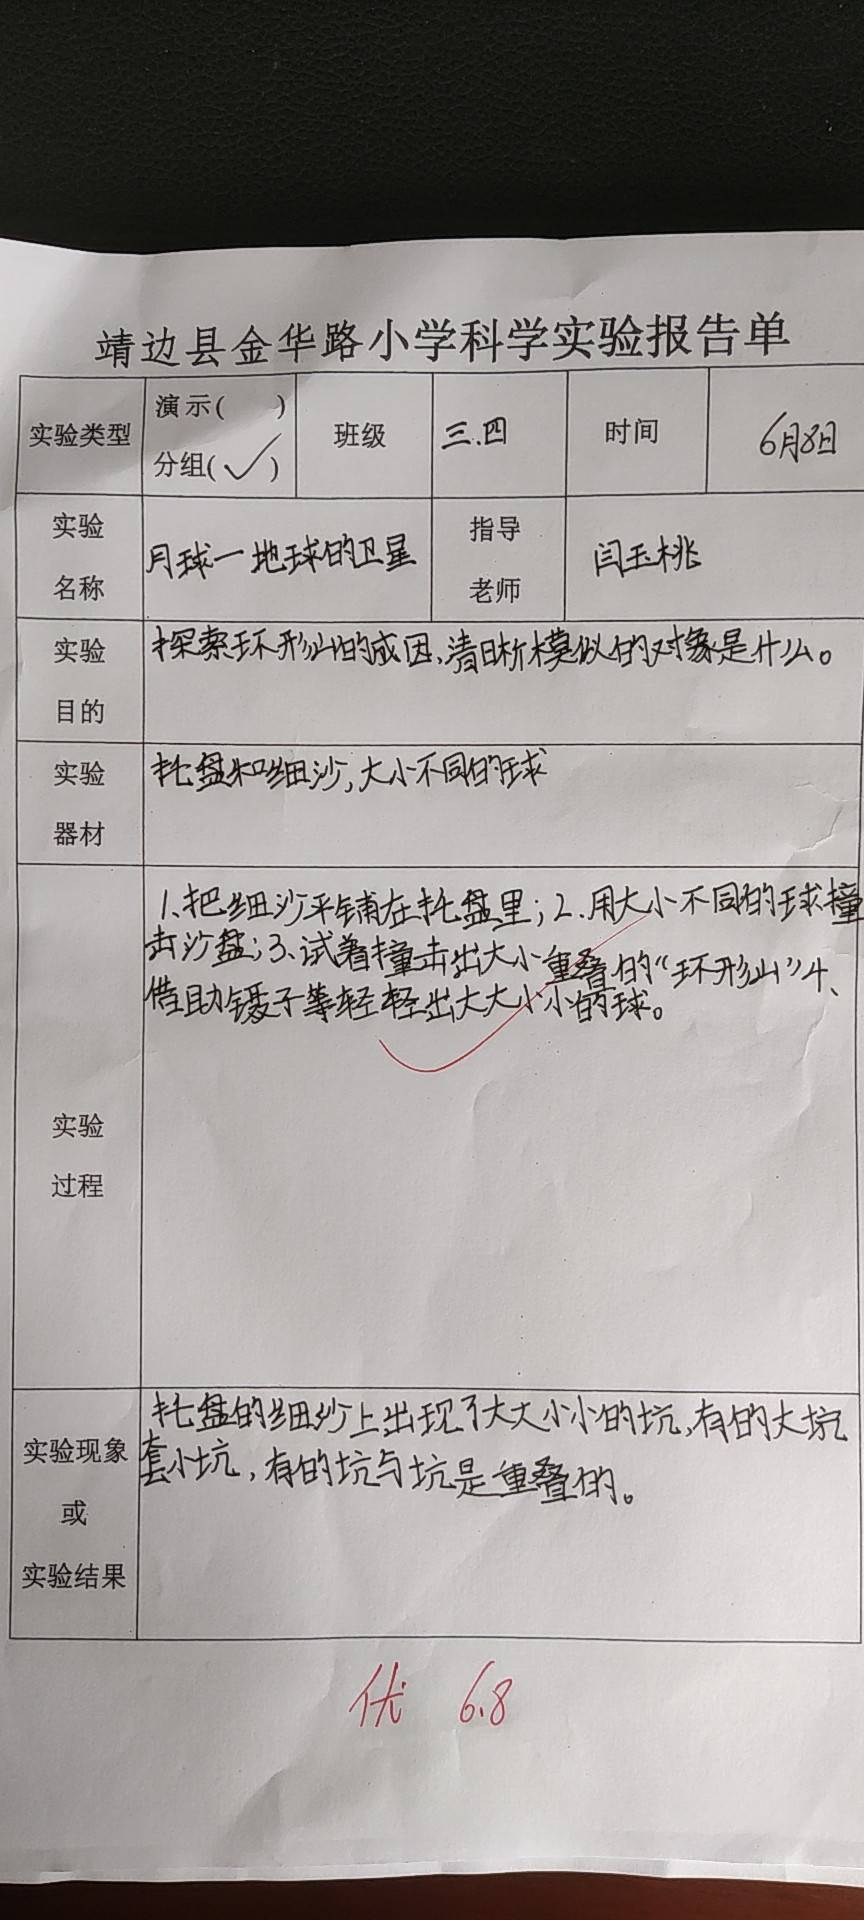 靖边县金华路小学科学实验报告单
实验类型
演示( )
分组(✓)
班级
三.四
时间
6月8日
实验
名称
月球一地球的卫星
指导
老师
闫玉桃
实验
目的
探索环形山的成因,清晰模似的对象是什么。
实验
器材
托盘和细沙,大小不同的球
实验
过程
1、把细沙平铺在托盘里;2.用大小不同的球撞
击沙盘;3、试着撞击出大小重叠的“环形山”4、
借助镊子等轻轻出大大小小的球。
实验现象
或
实验结果
托盘的细沙上出现了大大小小的坑,有的大坑
套小坑,有的坑与坑是重叠的。
优 6.8